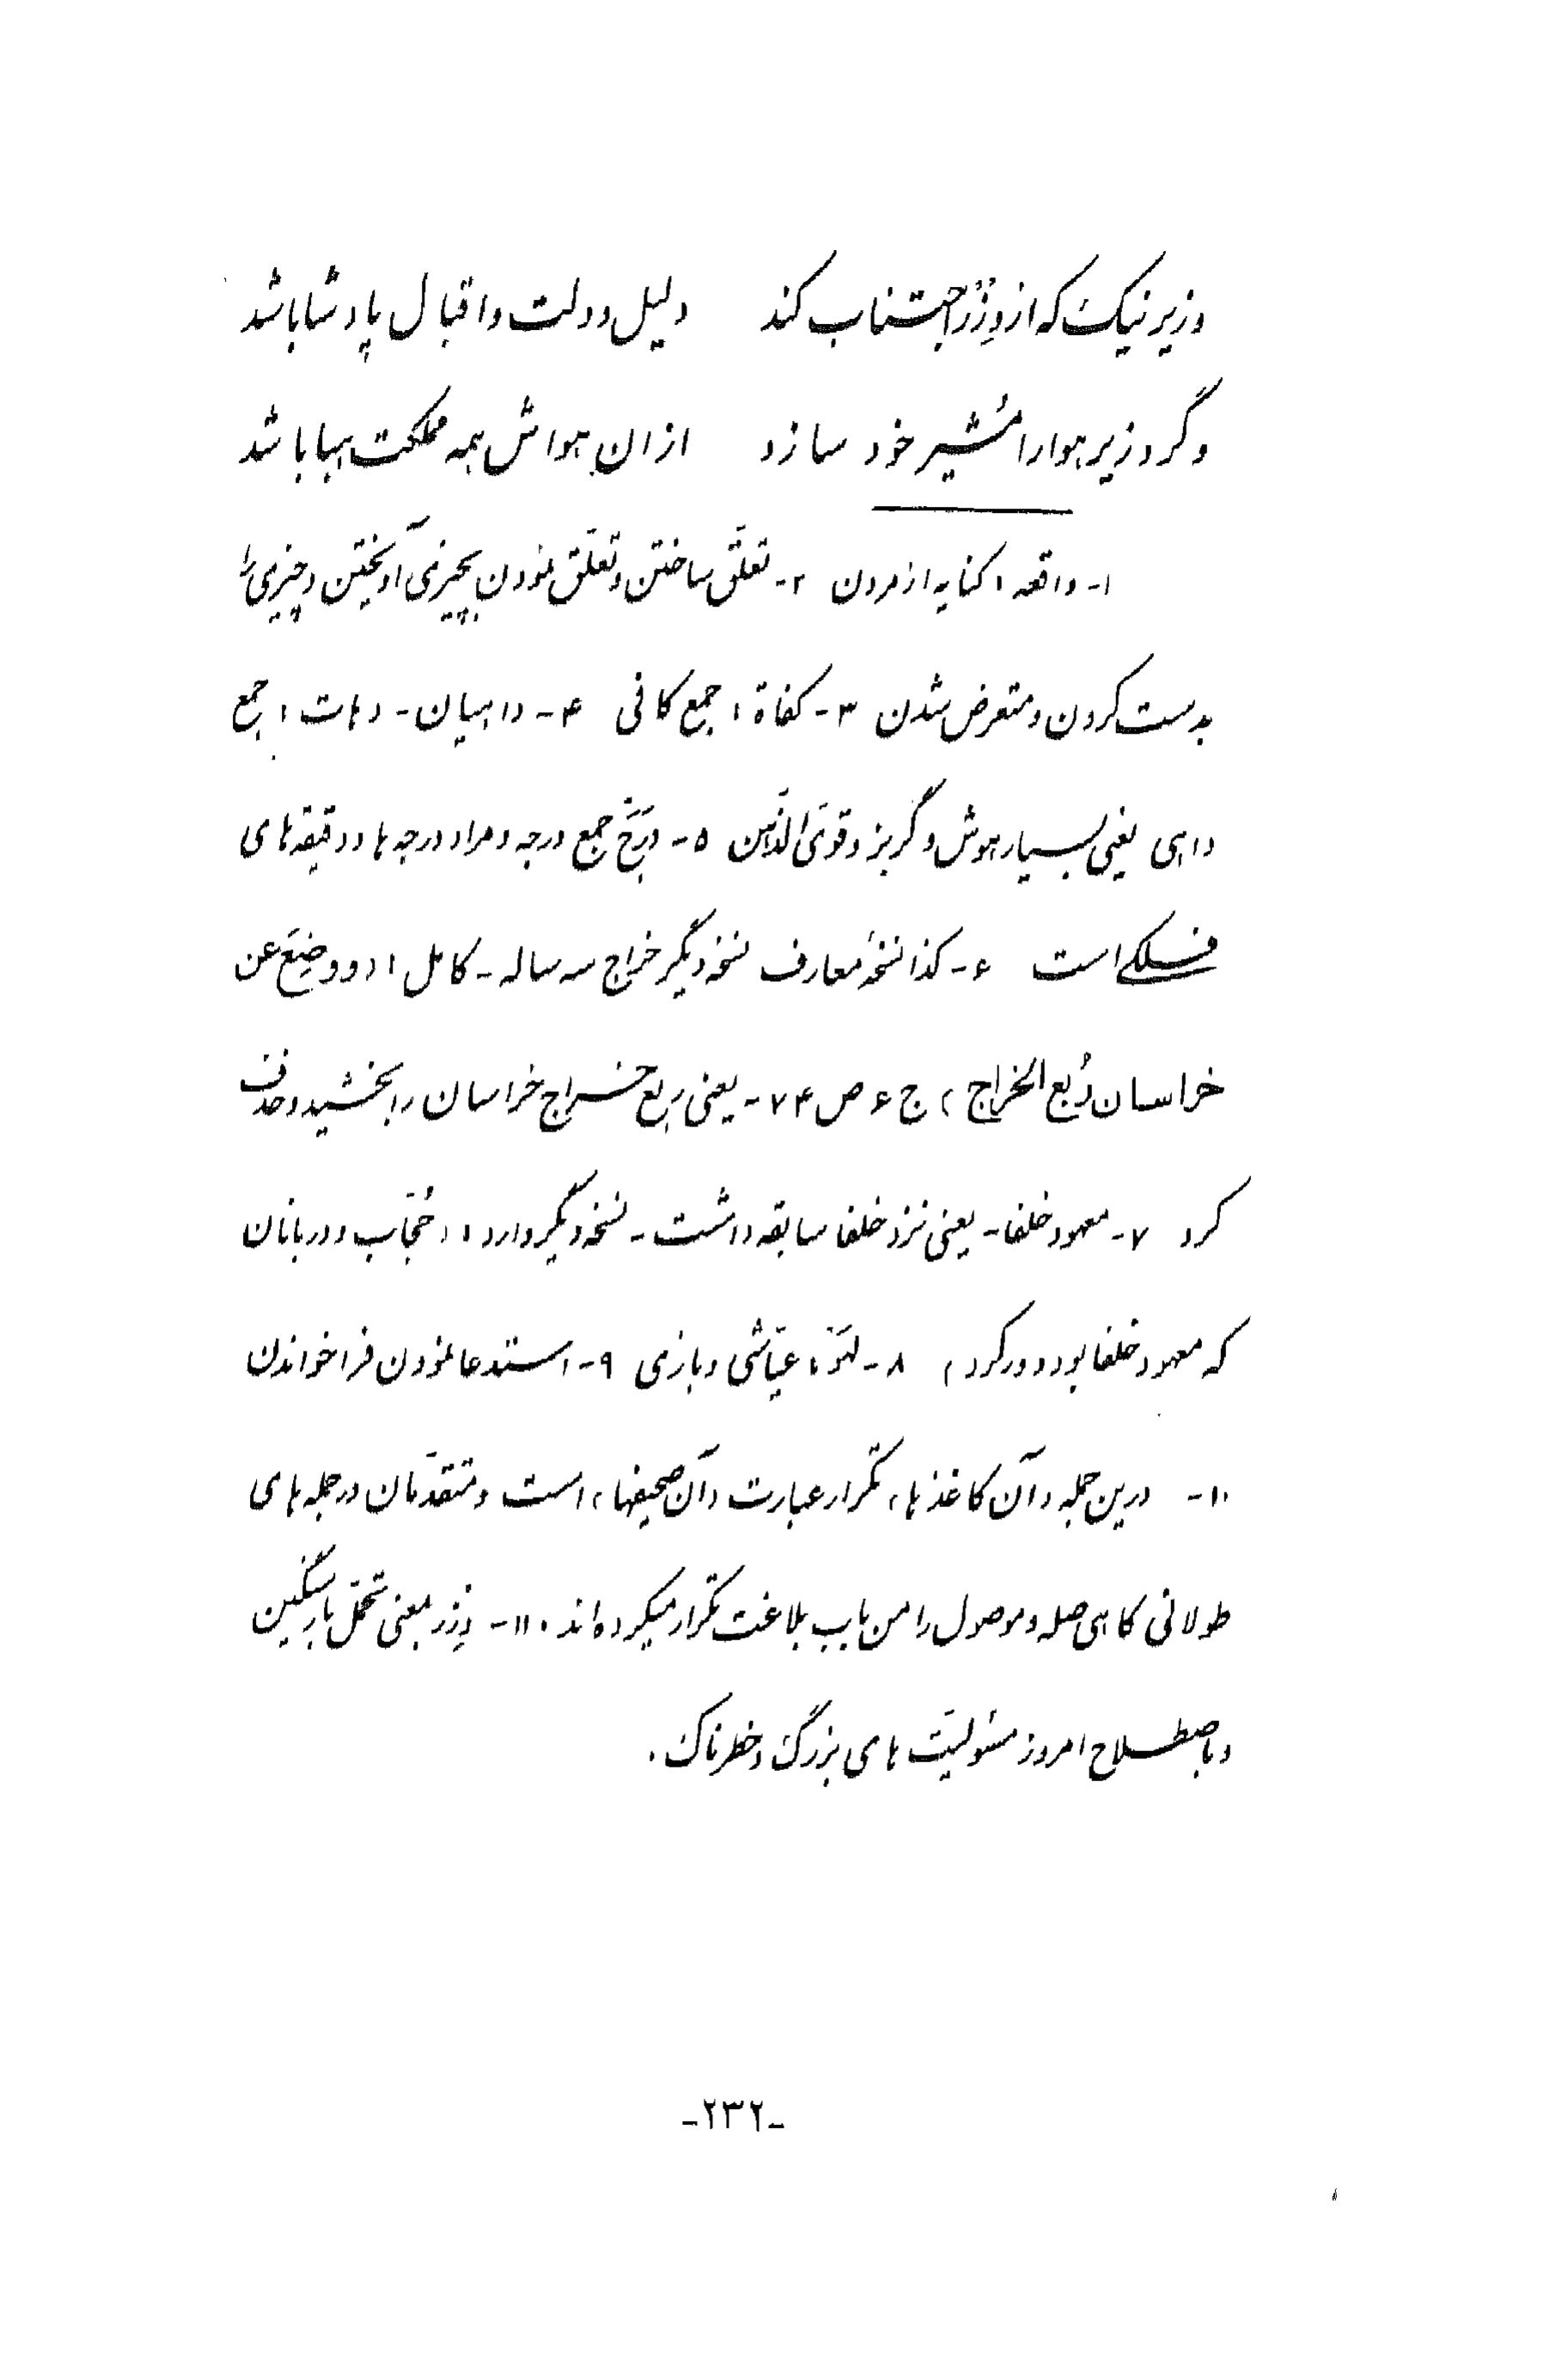 وزیر نیک که از وِزْرْ اجتناب کند    دلیل دولت و اقبال پادشا باشد
وگر وزیر هوا را مُشیر خود سازد    از ان هواش همه مملکت هبا باشد
۱- واقعه؛ کنایه از مردن  ۲- تعلّق ساختن و تعلّق نمودن بچیزی آویختن و چیزی را
بدست کردن و متعرض شدن  ۳- کفاة؛ جمع کافی  ۴- داهیان- دهات؛ جمع
داهی یعنی بسیار هوش و گربز و قویّ الذّهن  ۵- دَرَجْ جمع درجه و مراد درجه‌ها و دقیقه‌های
فلکی است  ۶- کذا نسخهٔ معارف نسخه دیگر خراج سه ساله- کامل: «و وضَعَ عن
خراسان رُبع الخراج» ج ۶ ص ۷۴- یعنی ربع خراج خراسان را بخشید و حذف
کرد  ۷- معهود خلفا- یعنی نزد خلفا سابقه داشت- نسخه دیگر دارد: «حُجّاب و دربانان
که معهود خلفا بود دور کرد»  ۸- لَهْو؛ عیّاشی و بازی  ۹- استدعا نمودن فراخواندن
۱۰- درین جمله «آن کاغذها» تکرار عبارت «آن صحیفها» است و متقدّمان در جمله‌های
طولانی گاهی صله و موصول را من باب بلاغت تکرار میکرده‌اند. ۱۱- وِزر بمعنی تحمّل بار سنگین
و باصطلاح امروز مسئولیّت های بزرگ و خطرناک.
-۲۳۲-